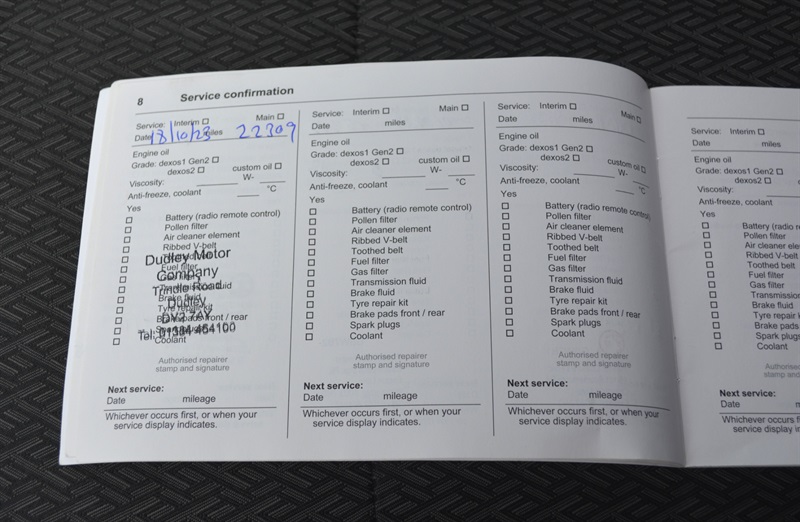 8 Service confirmation
Service: Interim ☐ Main ☐
Date 18/10/23 miles 22309
Engine oil
Grade: dexos1 Gen2 ☐
dexos2 ☐ custom oil ☐
Viscosity: W-
Anti-freeze, coolant °C
Yes
☐ Battery (radio remote control)
☐ Pollen filter
☐ Air cleaner element
☐ Ribbed V-belt
☐ Toothed belt
☐ Fuel filter
☐ Gas filter
☐ Transmission fluid
☐ Brake fluid
☐ Tyre repair kit
☐ Brake pads front / rear
☐ Spark plugs
☐ Coolant
Dudley Motor
Company
Trindle Road
Dudley
DY2 7AY
Tel: 01384 454100
Authorised repairer
stamp and signature
Next service:
Date mileage
Whichever occurs first, or when your
service display indicates.
Service: Interim ☐ Main ☐
Date miles
Engine oil
Grade: dexos1 Gen2 ☐
dexos2 ☐ custom oil ☐
Viscosity: W-
Anti-freeze, coolant °C
Yes
☐ Battery (radio remote control)
☐ Pollen filter
☐ Air cleaner element
☐ Ribbed V-belt
☐ Toothed belt
☐ Fuel filter
☐ Gas filter
☐ Transmission fluid
☐ Brake fluid
☐ Tyre repair kit
☐ Brake pads front / rear
☐ Spark plugs
☐ Coolant
Authorised repairer
stamp and signature
Next service:
Date mileage
Whichever occurs first, or when your
service display indicates.
Service: Interim ☐ Main ☐
Date miles
Engine oil
Grade: dexos1 Gen2 ☐
dexos2 ☐ custom oil ☐
Viscosity: W-
Anti-freeze, coolant °C
Yes
☐ Battery (radio remote control)
☐ Pollen filter
☐ Air cleaner element
☐ Ribbed V-belt
☐ Toothed belt
☐ Fuel filter
☐ Gas filter
☐ Transmission fluid
☐ Brake fluid
☐ Tyre repair kit
☐ Brake pads front / rear
☐ Spark plugs
☐ Coolant
Authorised repairer
stamp and signature
Next service:
Date mileage
Whichever occurs first, or when your
service display indicates.
Service: Interim ☐
Date miles
Engine oil
Grade: dexos1 Gen2 ☐
dexos2 ☐
Viscosity:
Anti-freeze, coolant
Yes
☐ Battery (radio
☐ Pollen filter
☐ Air cleaner
☐ Ribbed V-belt
☐ Toothed belt
☐ Fuel filter
☐ Gas filter
☐ Transmission
☐ Brake fluid
☐ Tyre repair
☐ Brake pads
☐ Spark plugs
☐ Coolant
Authorised
stamp
Next service:
Date
Whichever occurs
service display